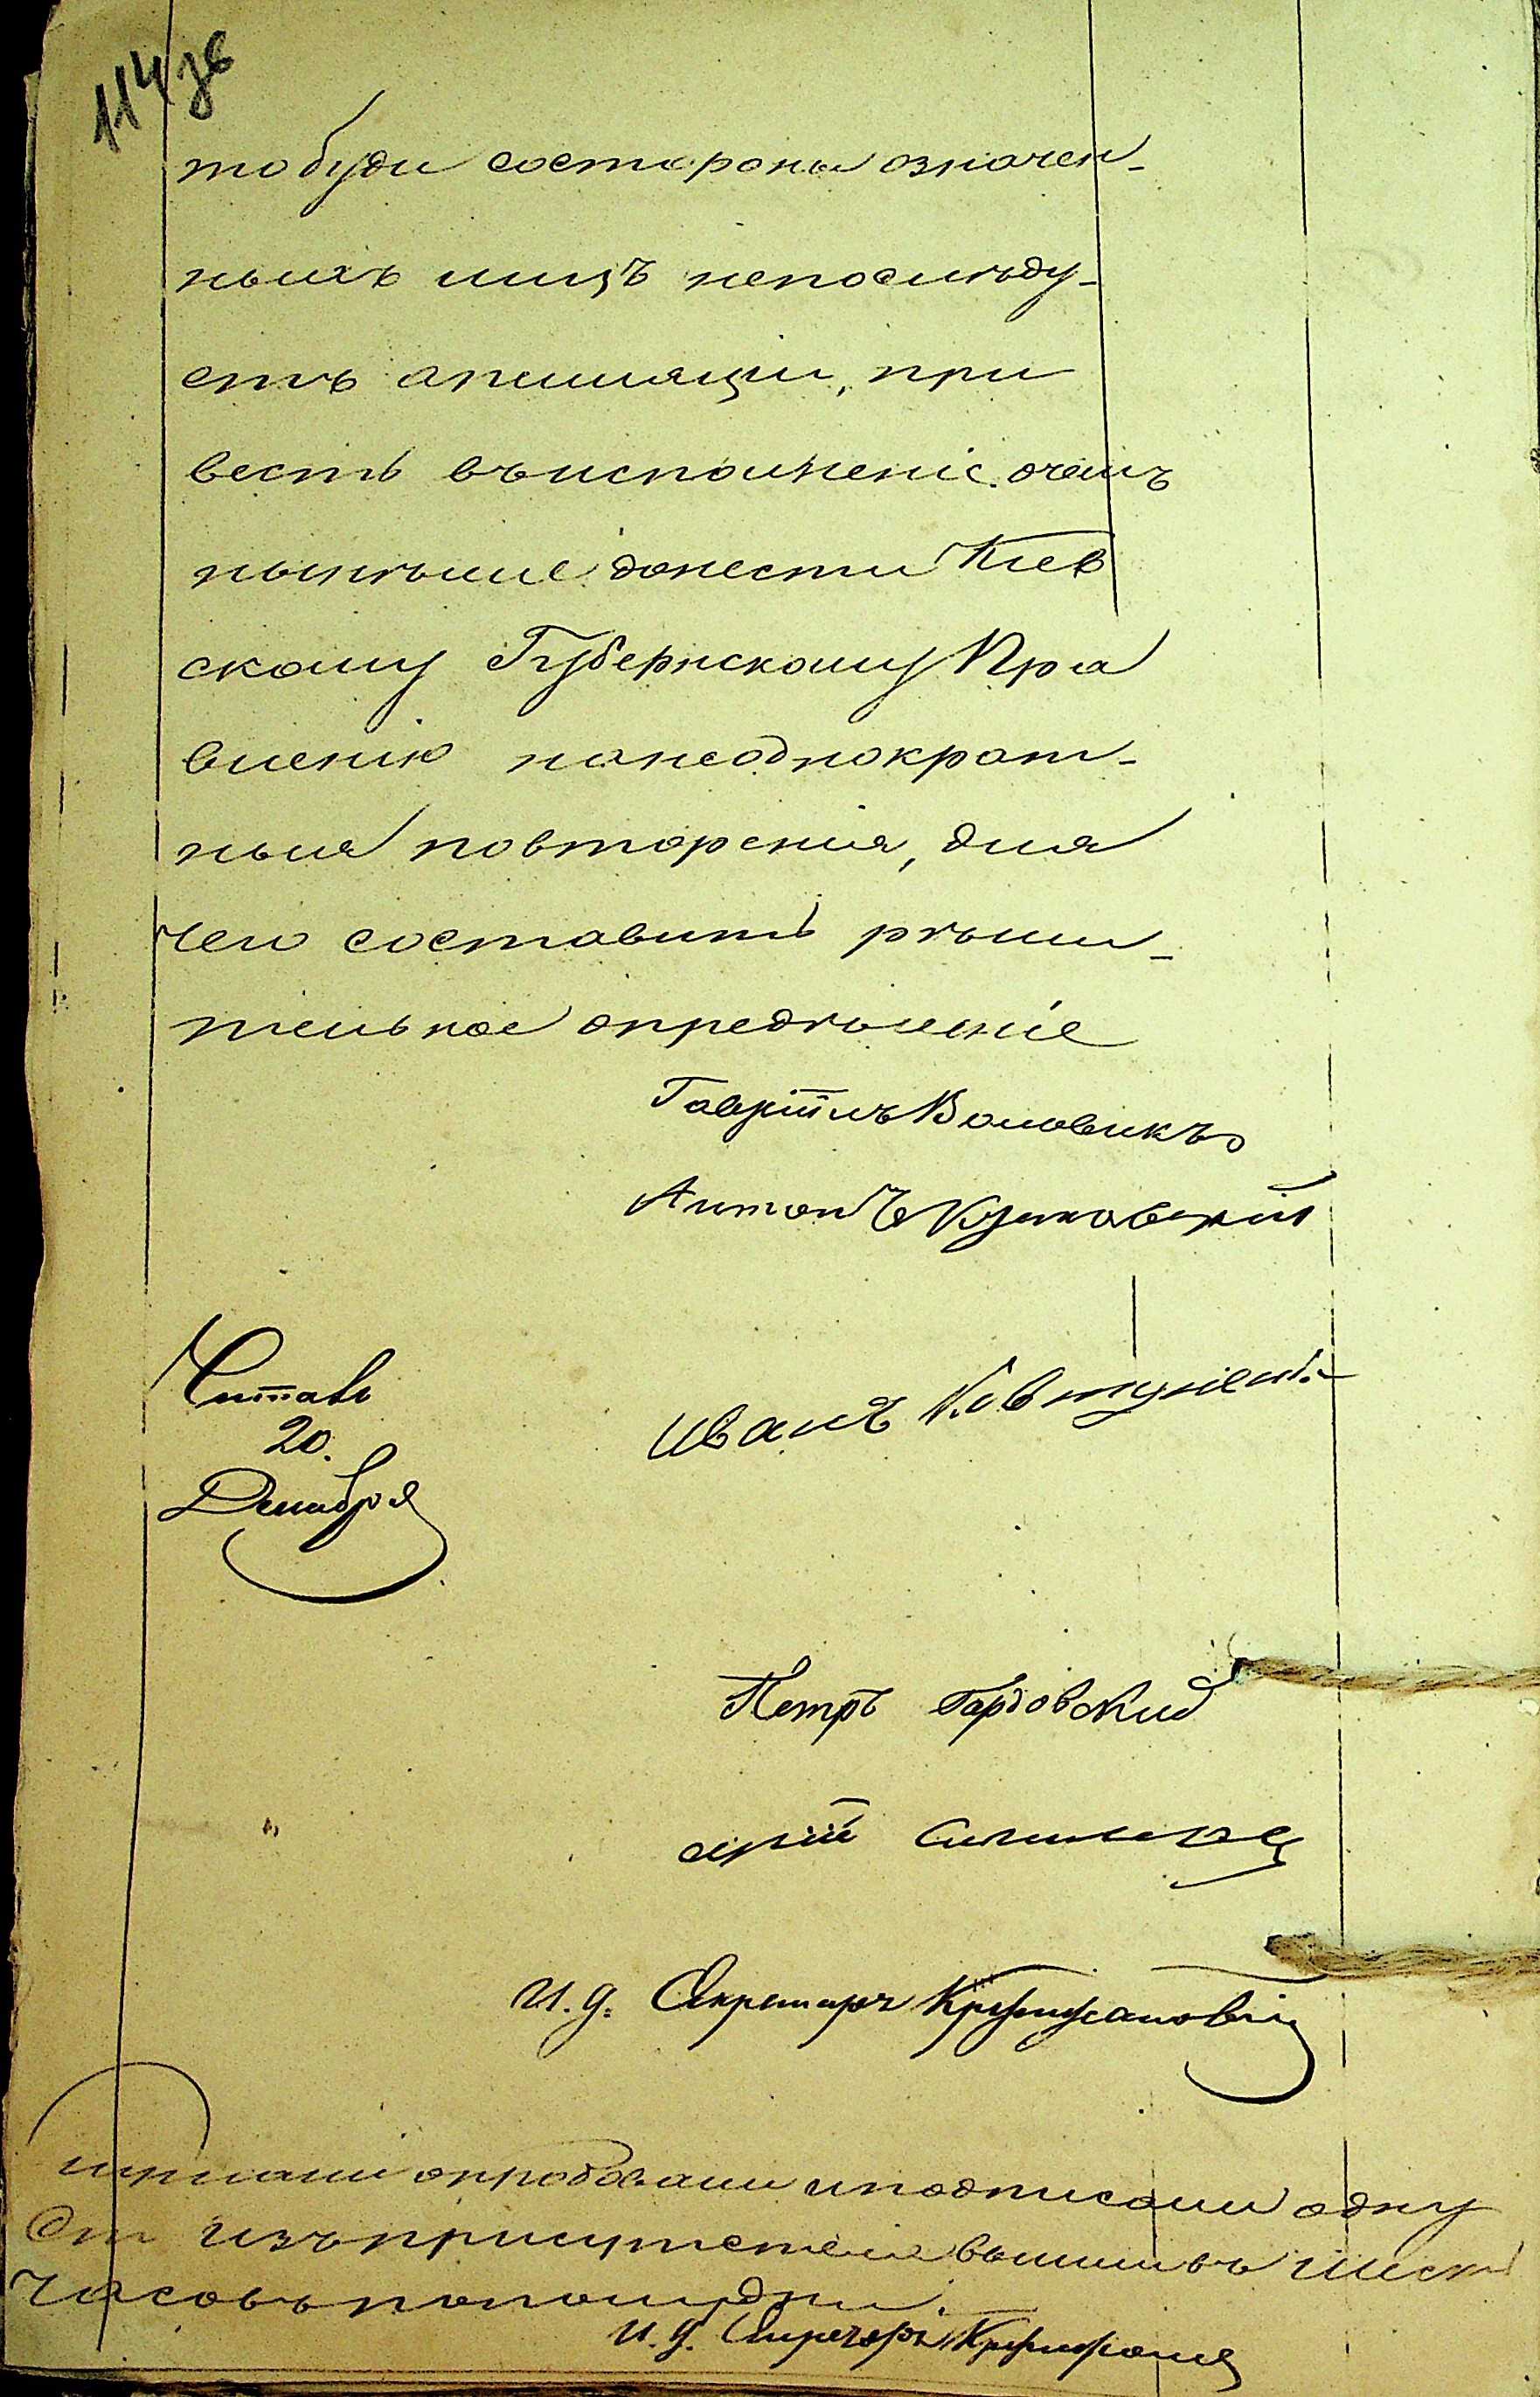 114 зв
то буди состороны означен-
ныхъ лицъ непослѣду-
етъ апелляціи, при
весть въисполненіе. очемъ
нынѣшне донести Кіев
скому Губернскому Пра
вленію нанеоднократ-
ныя повторенія, для
чего составить рѣши-
тельное опредѣленіе
Гавріилъ Воловикъ
Антонъ
Читалъ
20.
Декабря
Иванъ Ковтуненко
Петръ
И. д. Секретаря
опробовали иподписали одну
изъприсутствія вышли въ шесть
часовъ пополудни.
И. д. Секретаря